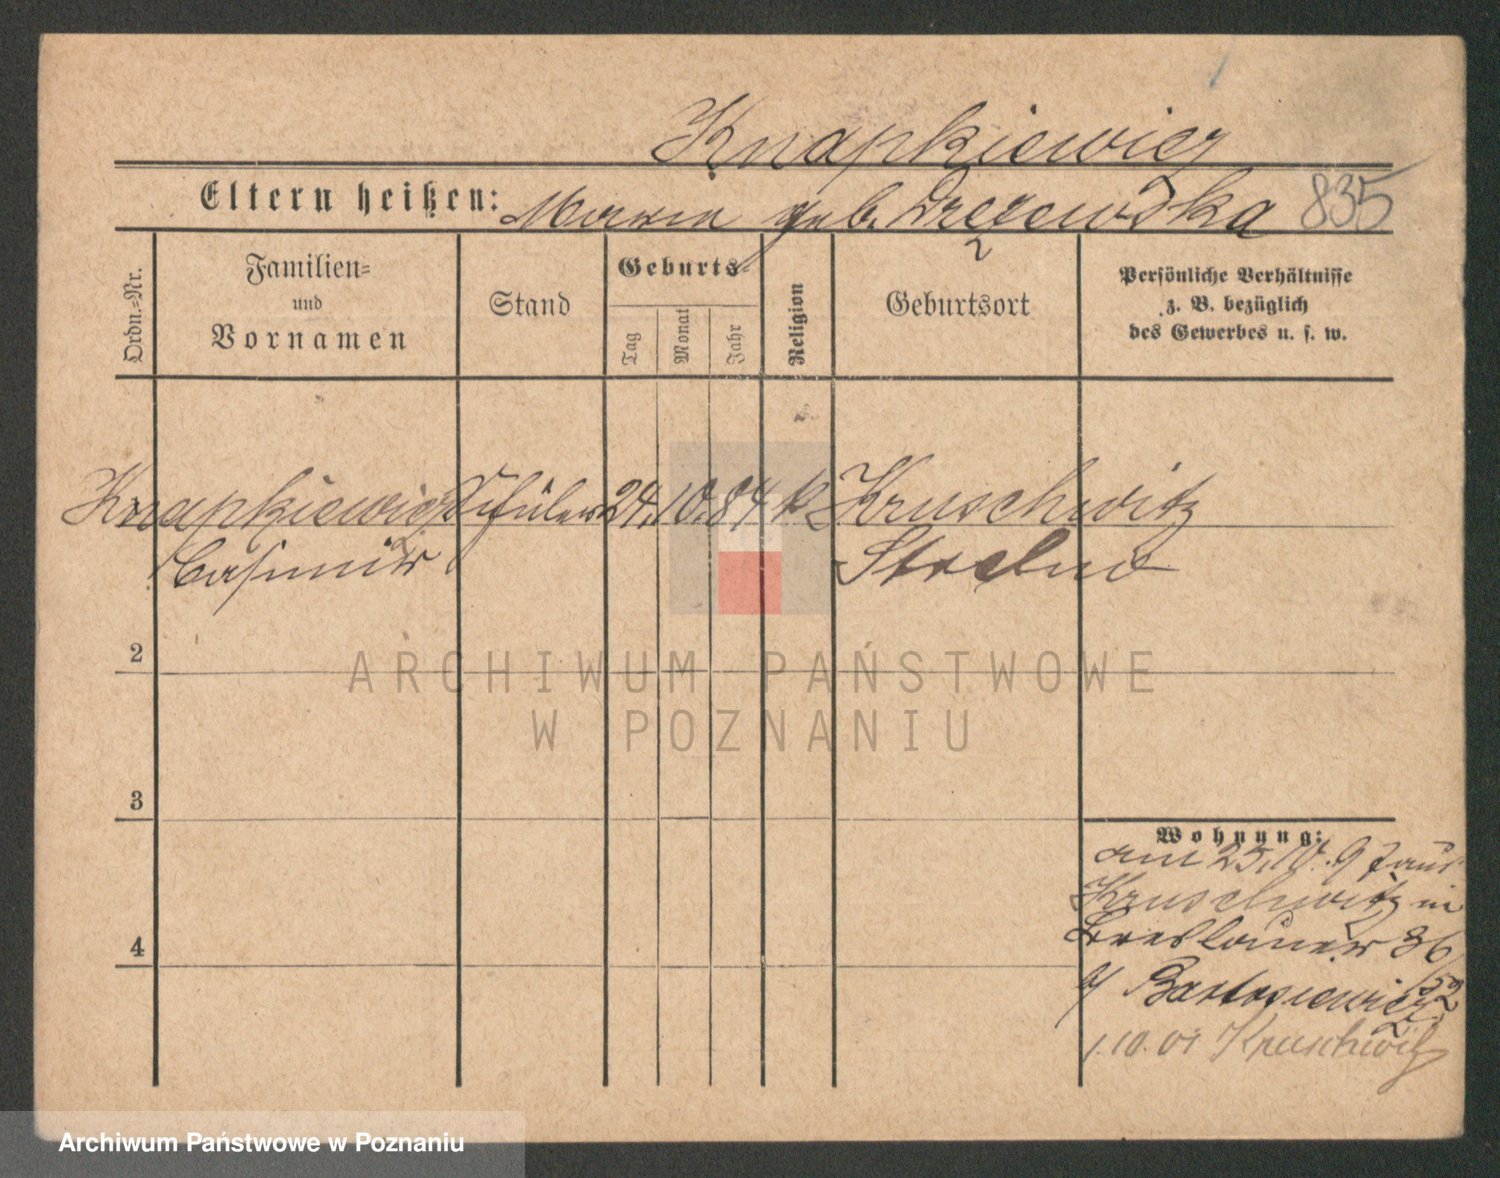 Knapkiewicz
Eltern heißen: Maria geb. Drzewska 835
Ordn.-Nr.
Familien-
und
Vornamen
Stand
Geburts-
Tag
Monat
Jahr
Religion
Geburtsort
Persönliche Verhältnisse
z. B. bezüglich
des Gewerbes u. s. w.
Knapkiewicz Schüler 24. 10. 84 k Kruschwitz
Casimir Strelno
2
3
4
Wohnung:
am 25.10.97 aus
Kruschwitz in
Breslauer 36
b/ Bartosiewicz
1.10.01 Kruschwitz
ARCHIWUM PAŃSTWOWE
W POZNANIU
Archiwum Państwowe w Poznaniu